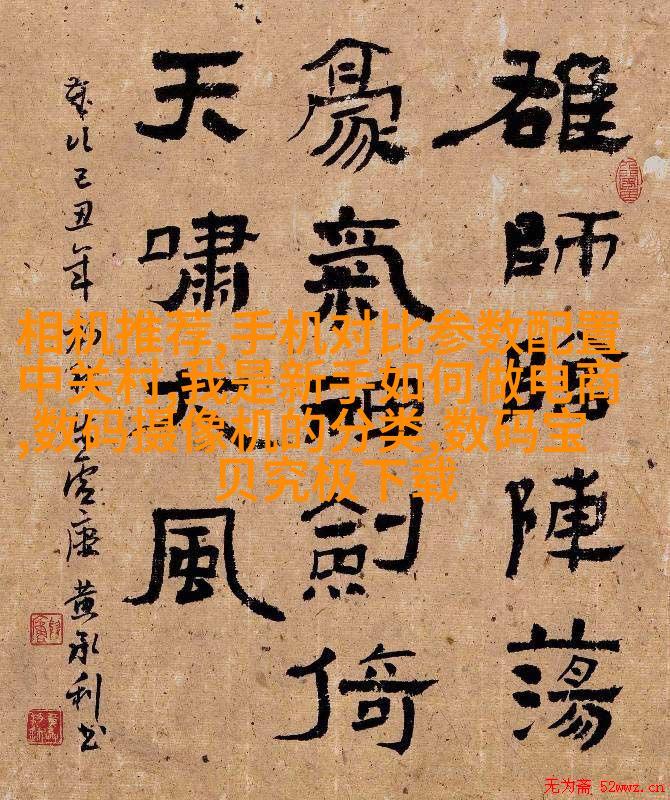 雄師陣蕩
豪氣劍倚
天嘯大風
己丑年
黄利书
相机推荐,手机对比参数配置
中关村,我是新手如何做电商
,数码摄像机的分类,数码宝
贝究极下载
无为斋 52wwz.cn